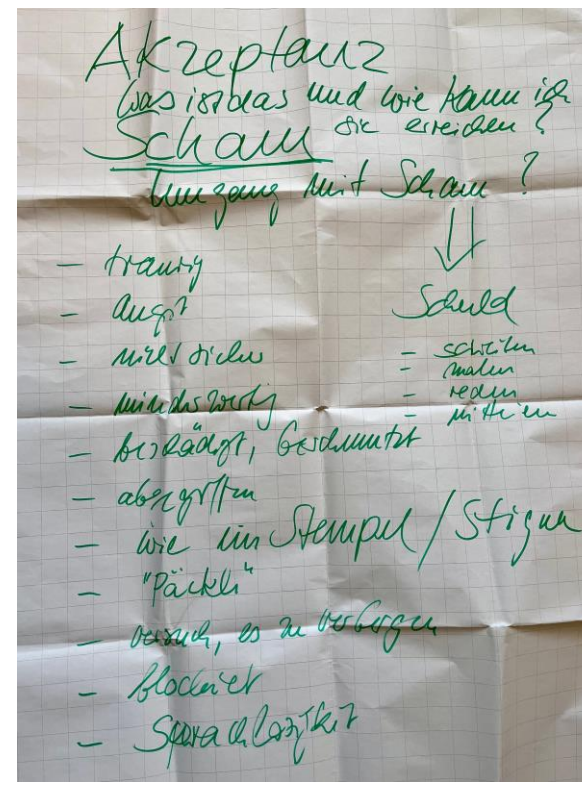 Akzeptanz
Was ist das und wie kann ich
sie erreichen?
Scham
Umgang mit Scham?
- traurig
- Angst
- nicht sicher
- minderwertig
- beschädigt, beschmutzt
- abgegriffen
- wie ein Stempel / Stigma
- "Päckli"
- Versuch, es zu verbergen
- blockiert
- Sprachlosigkeit
Schuld
- schreiben
- malen
- reden